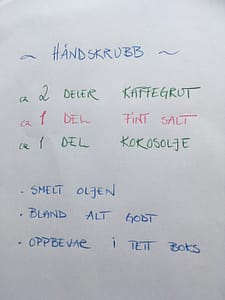 ~ HÅNDSKRUBB ~
ca 2 DELER KAFFEGRUT
ca 1 DEL FINT SALT
ca 1 DEL KOKOSOLJE
• SMELT OLJEN
• BLAND ALT GODT
• OPPBEVAR I TETT BOKS